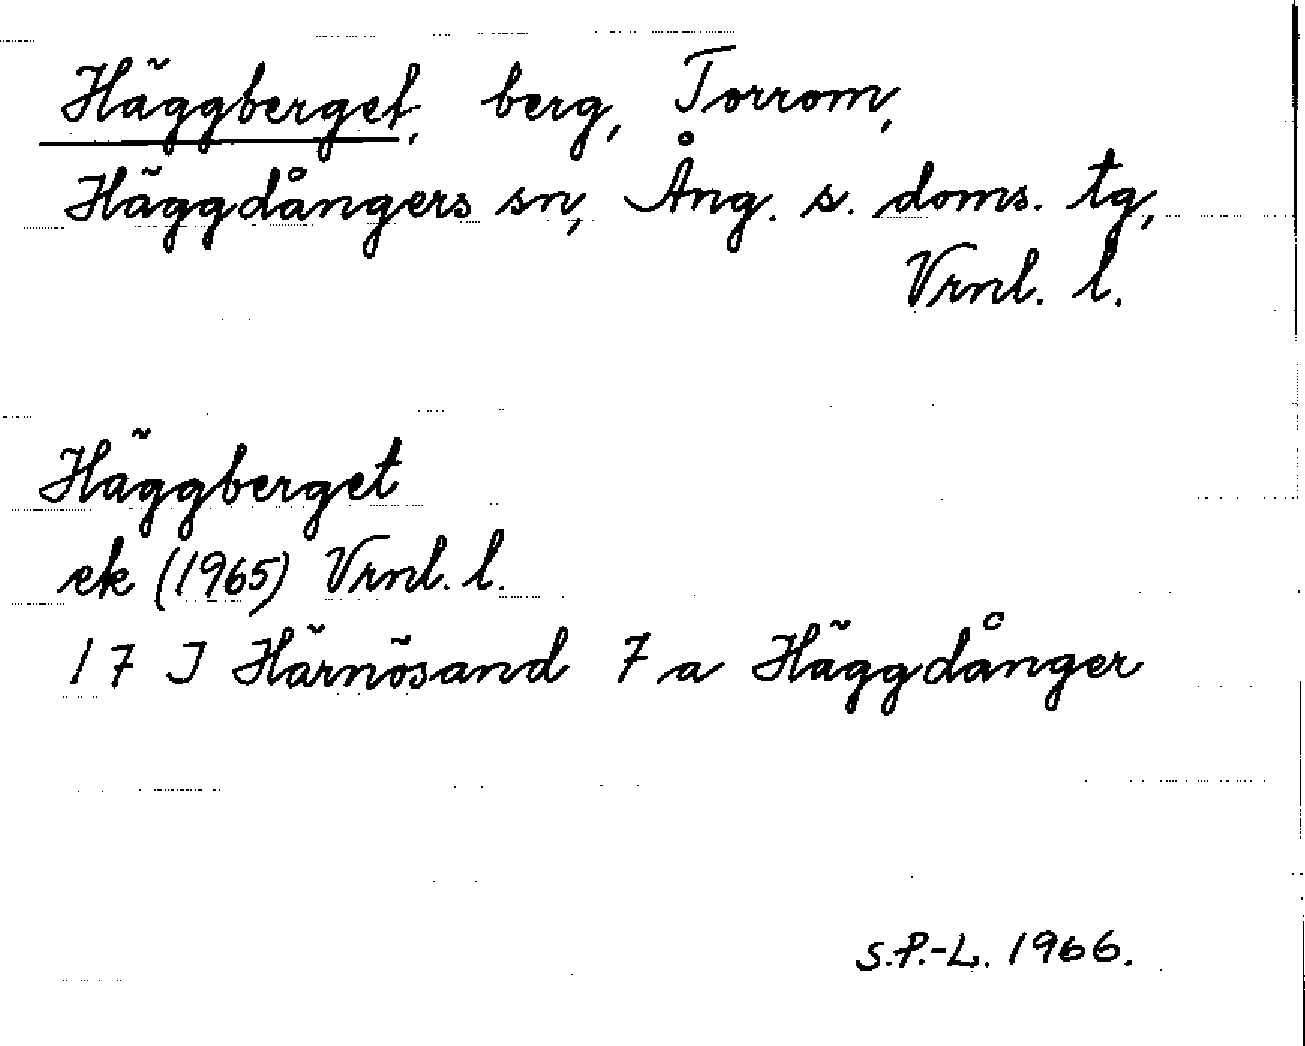 Häggberget, berg, Torrom,
Häggdångers sn, Ång. s. doms. tg,
Vrnl. l.
Häggberget
ek (1965) Vrnl. l.
17 I Härnösand 7 a Häggdånger
S.P.-L. 1966.